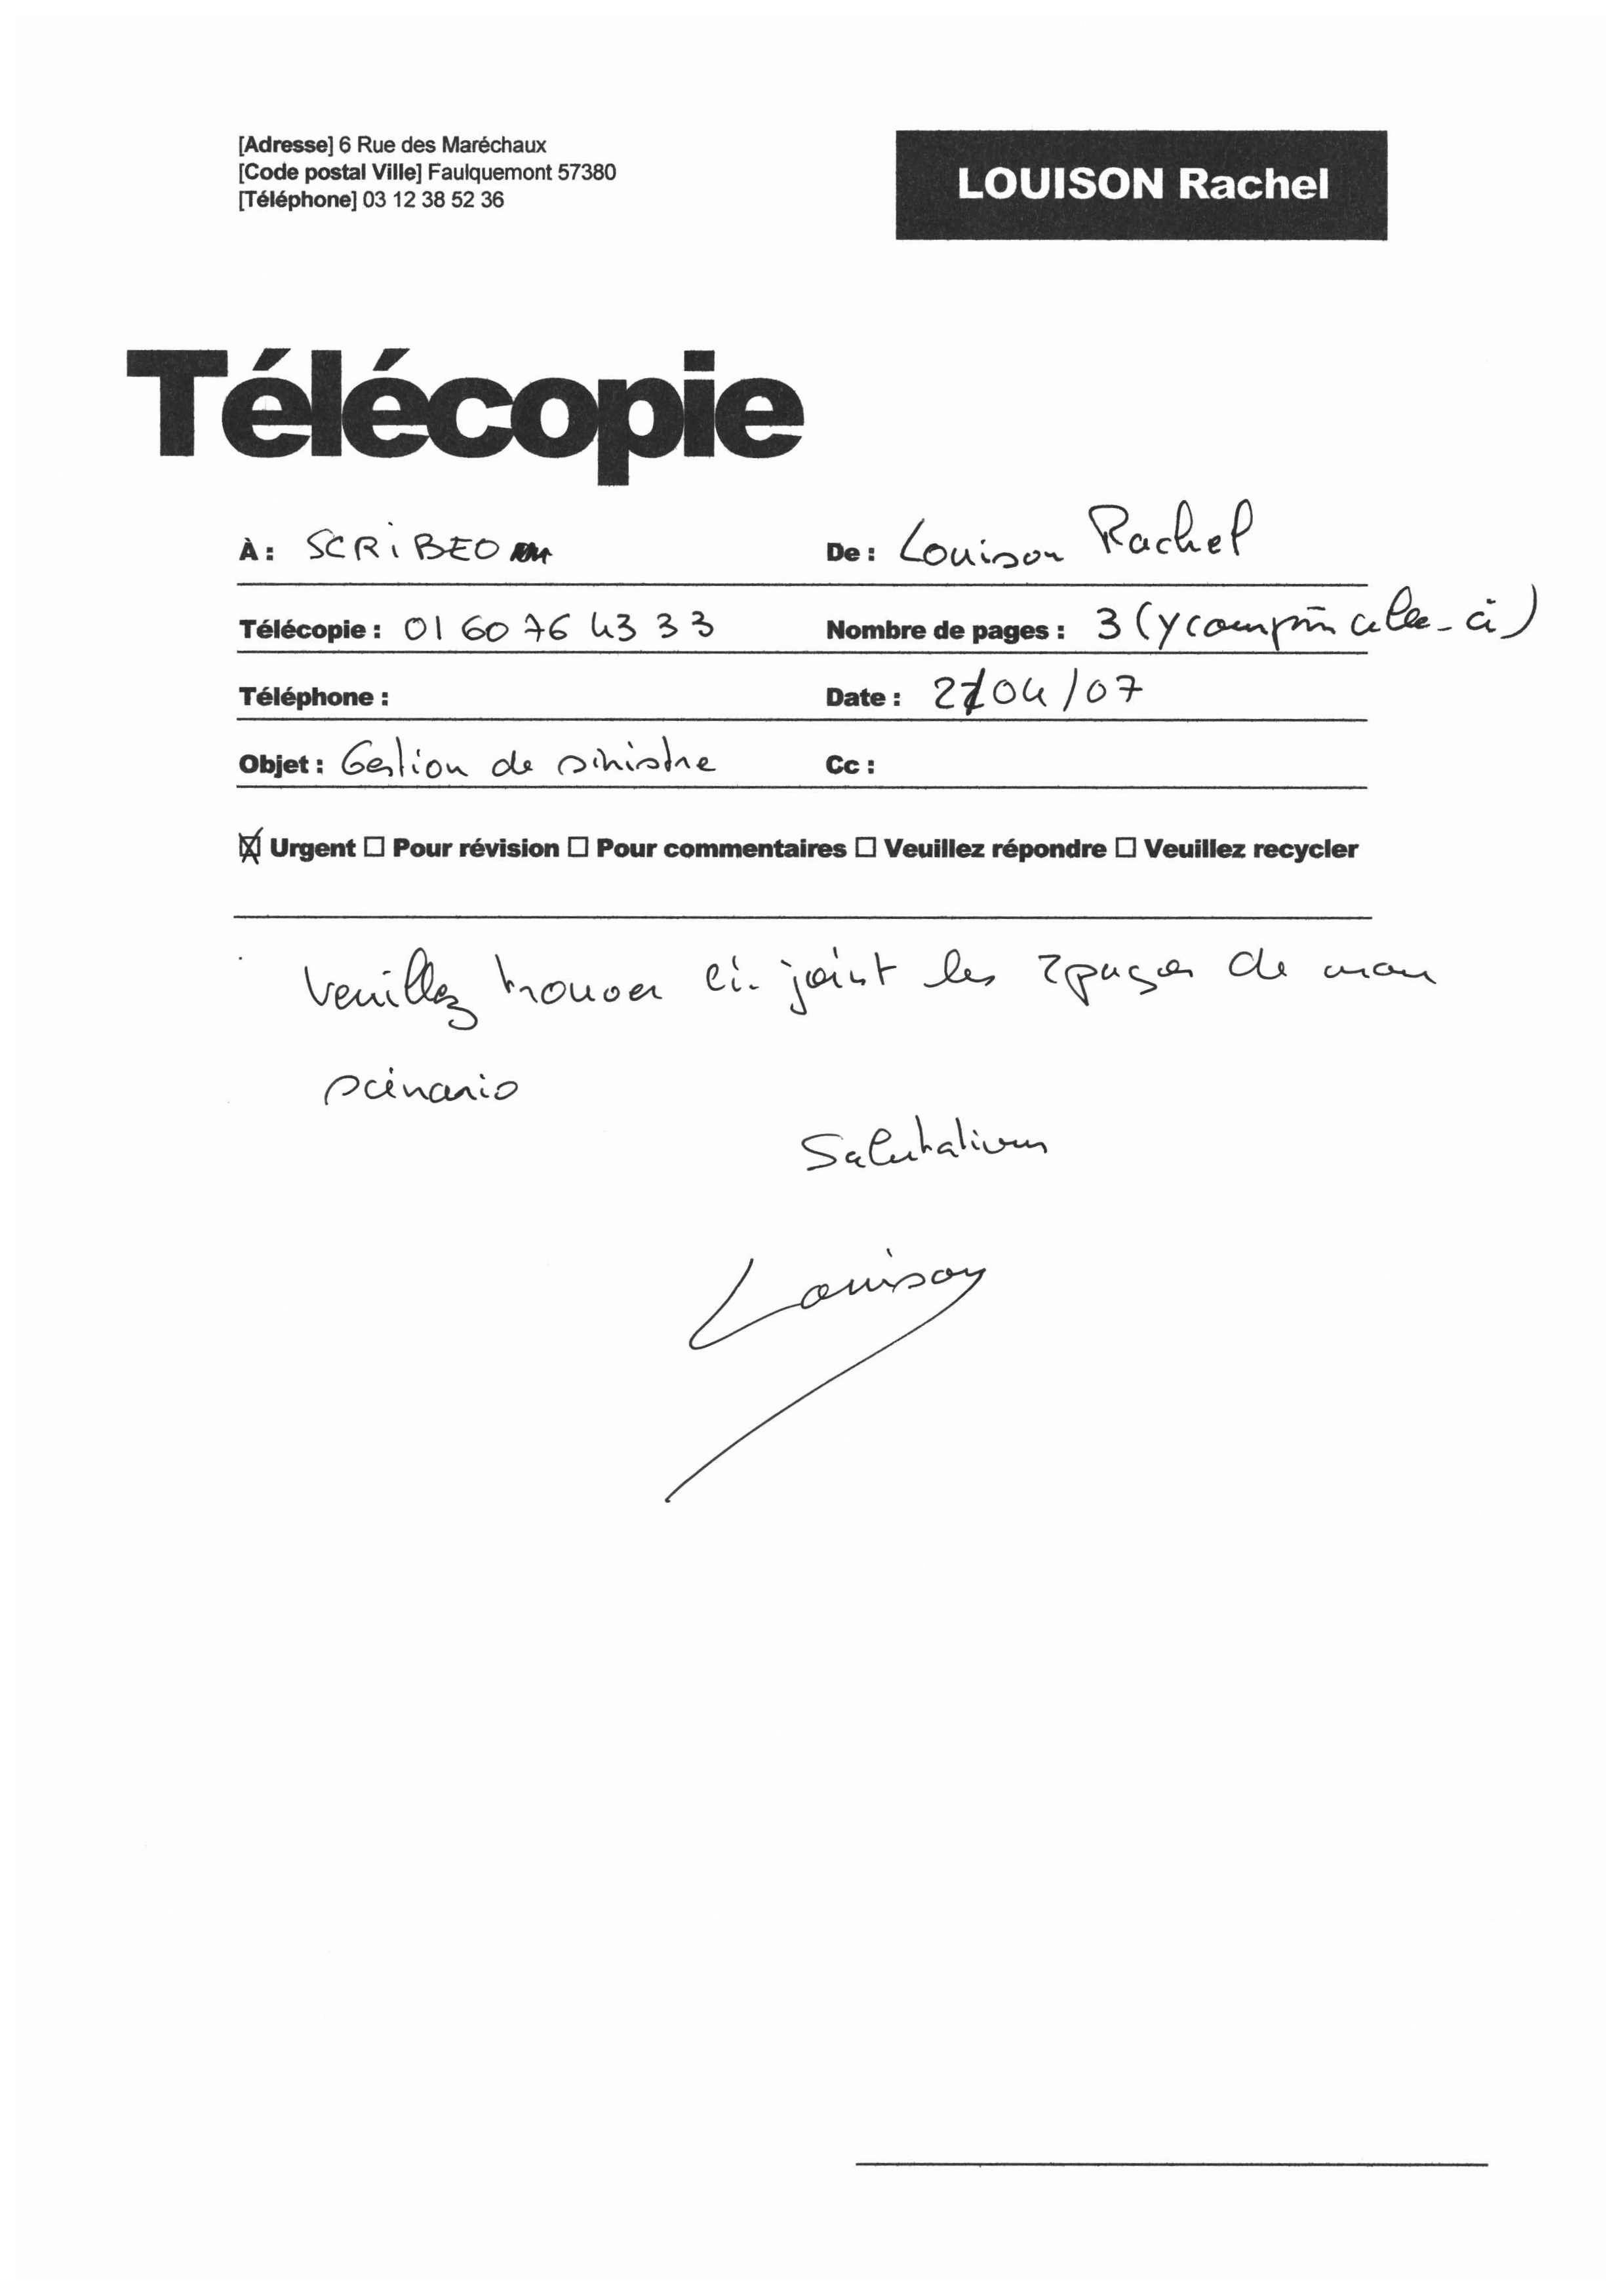 [Adresse] 6 Rue des Maréchaux
[Code postal Ville] Faulquemont 57380
[Téléphone] 03 12 38 52 36
LOUISON Rachel
Télécopie
À : SCRIBEO
De : Louison Rachel
Télécopie : 01 60 76 43 33
Nombre de pages : 3 (y compris celle-ci)
Téléphone :
Date : /04/07
Objet : Gestion de sinistre
Cc :
☒ Urgent ☐ Pour révision ☐ Pour commentaires ☐ Veuillez répondre ☐ Veuillez recycler
Veuillez trouver ci-joint les 2 pages de mon
scénario
Salutations
Louison